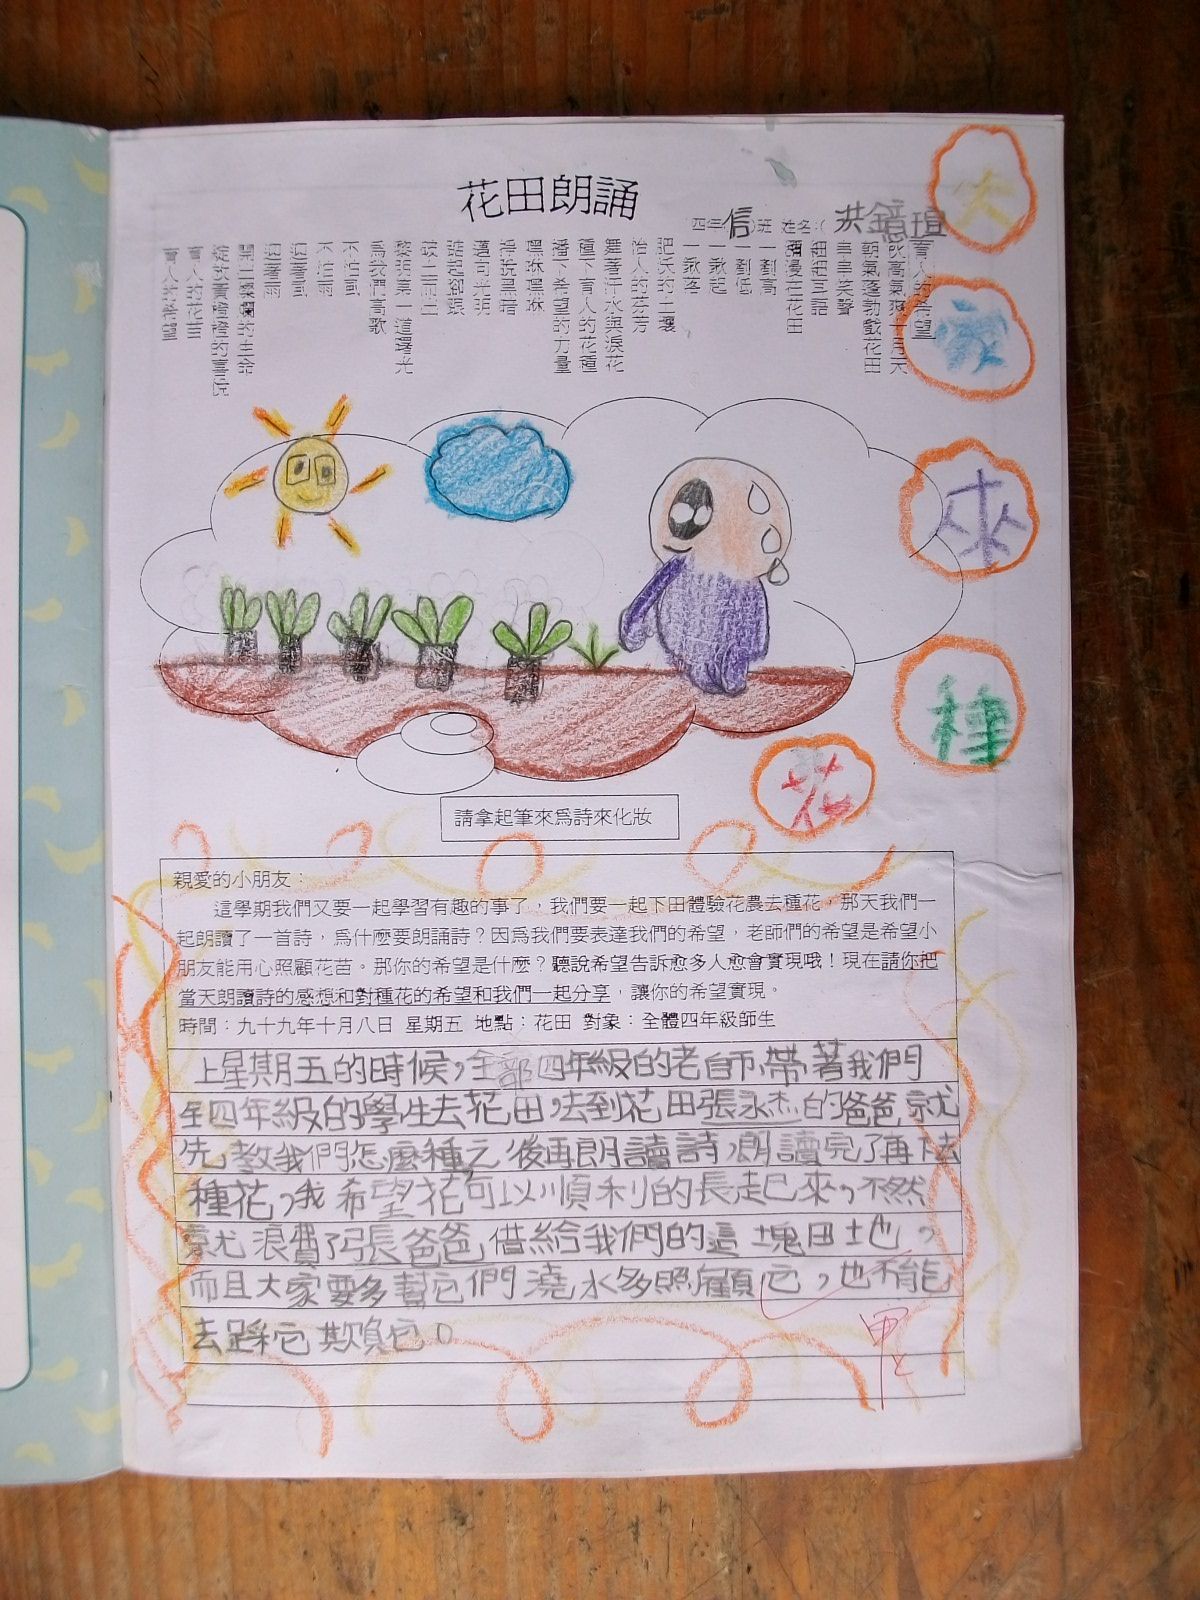 花田朗誦
四年(信)班 姓名:(洪鐿瑄
育人的希望
秋高氣爽十月天
朝氣蓬勃戲花田
串串笑聲
細細耳語
瀰漫在花田
一劃高
一劃低
一鍬起
一鍬落
肥沃的土壤
怡人的芬芳
舞著汗水與淚花
種下育人的花種
播下希望的力量
嘿咻嘿咻
掙脫黑暗
邁向光明
踮起腳跟
破土而立
黎明第一道曙光
為我們高歌
不怕風
不怕雨
迎著風
迎著雨
開出燦爛的生命
綻放黃橙橙的喜悅
育人的花苗
育人的希望
大
家
來
種
花
請拿起筆來為詩來化妝
親愛的小朋友:
這學期我們又要一起學習有趣的事了,我們要一起下田體驗花農去種花,那天我們一
起朗讀了一首詩,為什麼要朗誦詩?因為我們要表達我們的希望,老師們的希望是希望小
朋友能用心照顧花苗。那你的希望是什麼?聽說希望告訴愈多人愈會實現哦!現在請你把
當天朗讀詩的感想和對種花的希望和我們一起分享,讓你的希望實現。
時間:九十九年十月八日 星期五 地點:花田 對象:全體四年級師生
上星期五的時候,全部四年級的老師,帶著我們
四年級的學生去花田,去到花田張永杰的爸爸就
先教我們怎麼種之後再朗讀詩,朗讀完了再去
種花,我希望花可以順利的長起來,不然
就浪費了張爸爸借給我們的這塊田地,
而且大家要多幫它們澆水多照顧它,也不能
去踩它欺負它。
甲上